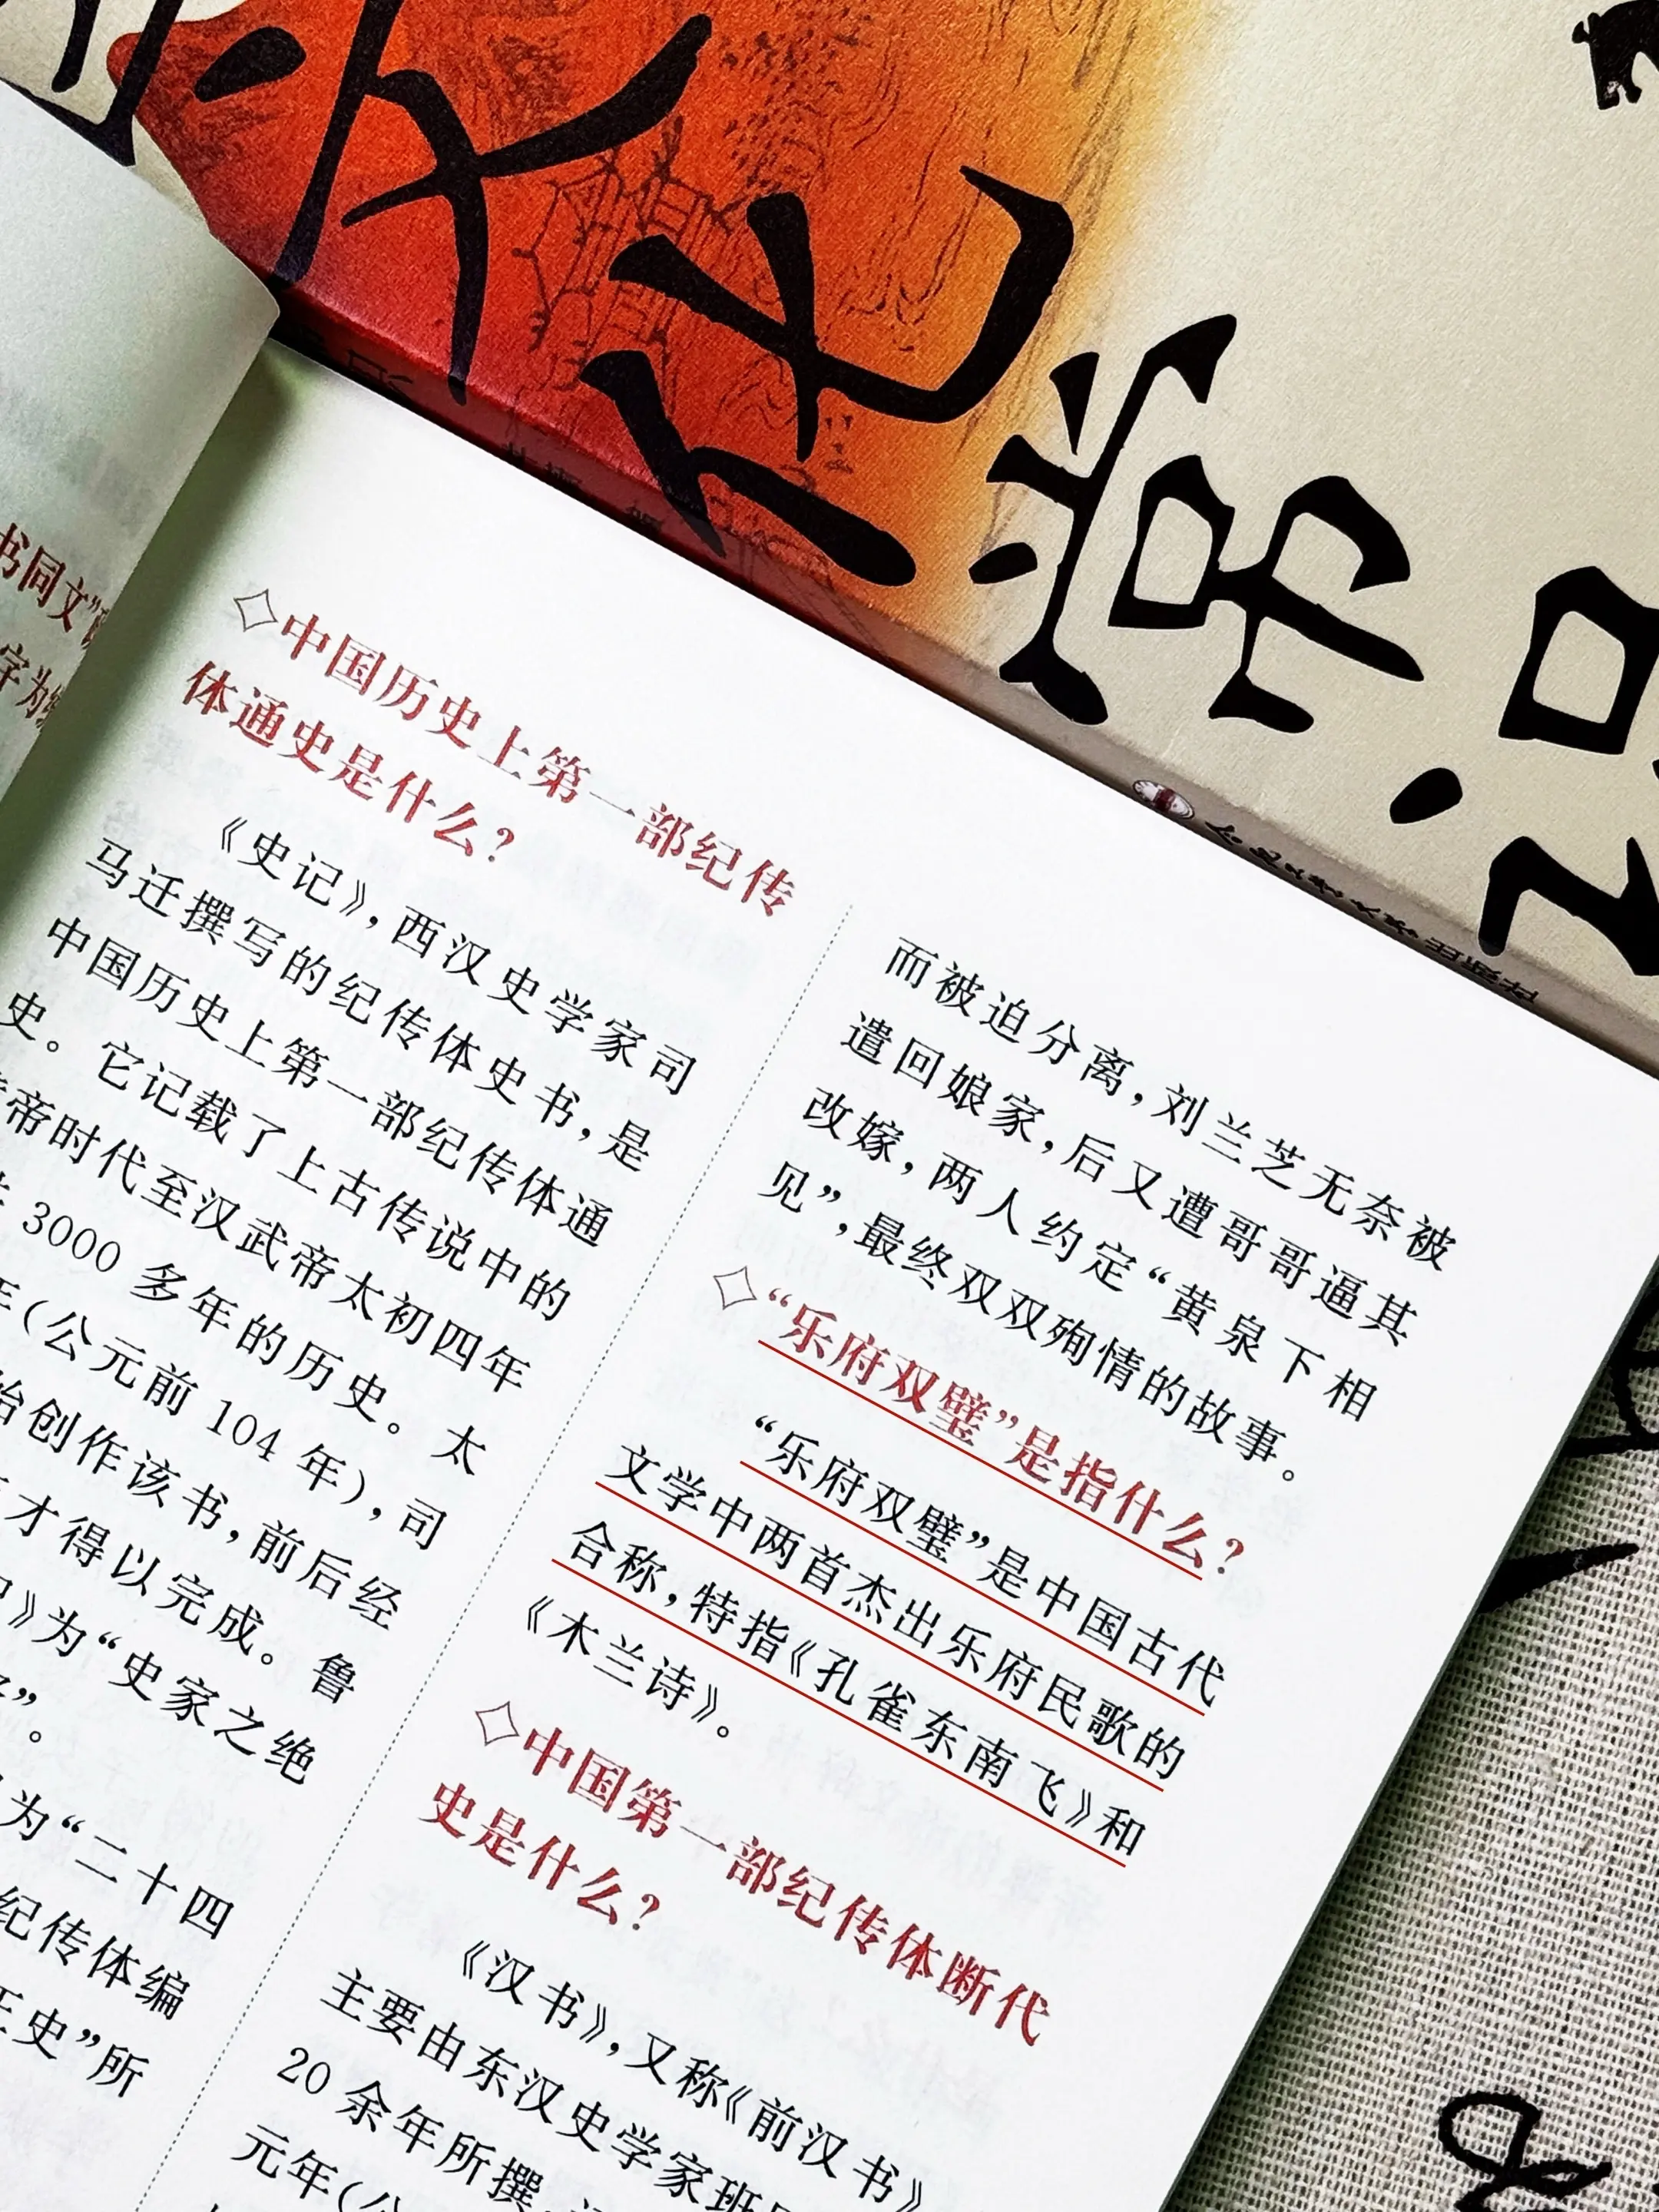 文化常识
书同文”
字为
◇中国历史上第一部纪传
体通史是什么?
《史记》,西汉史学家司
马迁撰写的纪传体史书,是
中国历史上第一部纪传体通
史。它记载了上古传说中的
帝时代至汉武帝太初四年
3000 多年的历史。太
(公元前 104 年),司
始创作该书,前后经
才得以完成。鲁
》为“史家之绝
”。
为“二十四
纪传体编
正史”所
而被迫分离,刘兰芝无奈被
遣回娘家,后又遭哥哥逼其
改嫁,两人约定“黄泉下相
见”,最终双双殉情的故事。
◇“乐府双璧”是指什么?
“乐府双璧”是中国古代
文学中两首杰出乐府民歌的
合称,特指《孔雀东南飞》和
《木兰诗》。
◇中国第一部纪传体断代
史是什么?
《汉书》,又称《前汉书》
主要由东汉史学家班
20 余年所撰,
元年(公